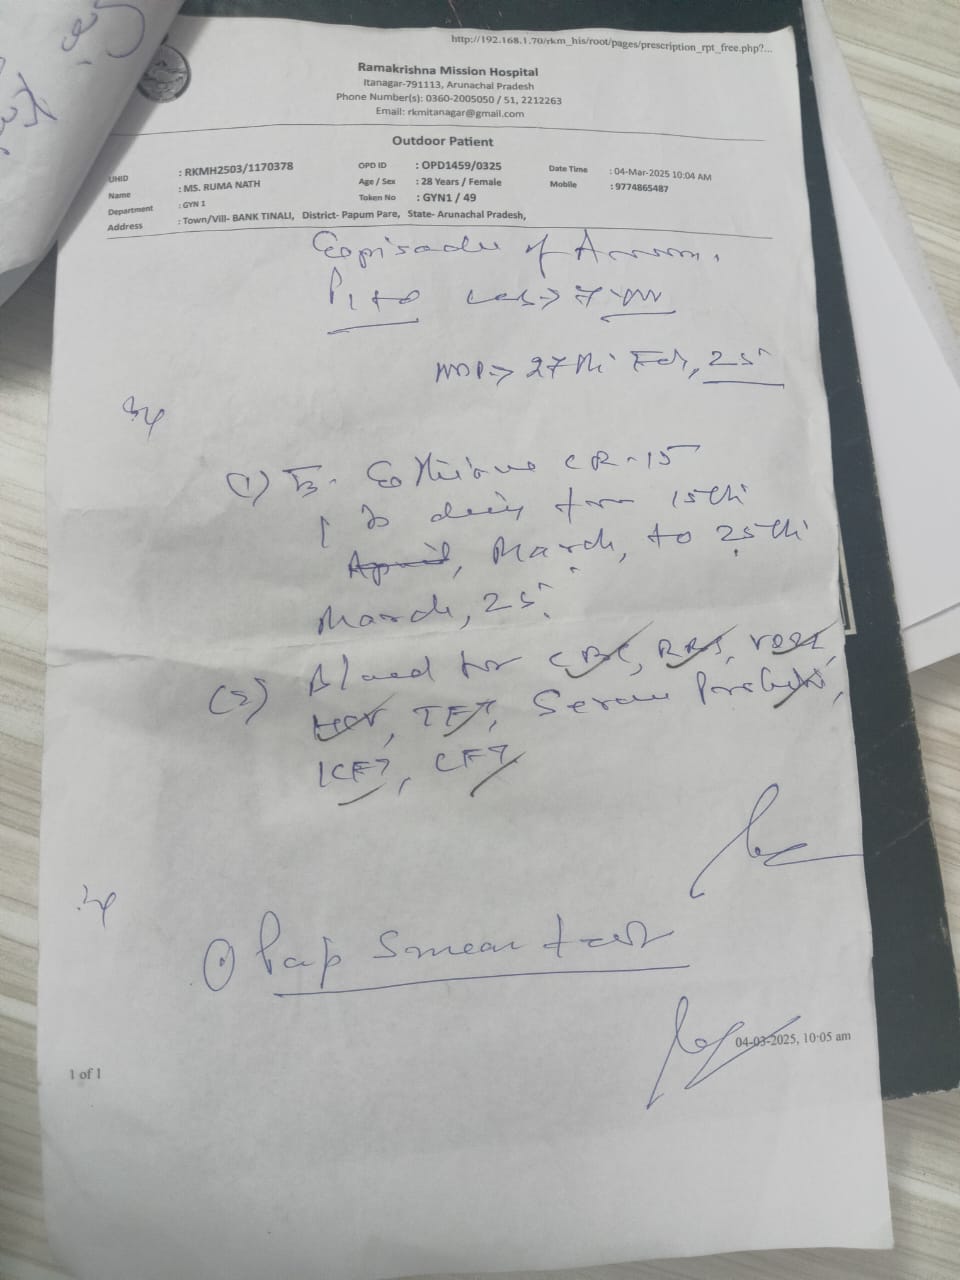 http://192.168.1.70/rkm_his/root/pages/prescription_rpt_free.php?...
Ramakrishna Mission Hospital
Itanagar-791113, Arunachal Pradesh
Phone Number(s): 0360-2005050 / 51, 2212263
Email: rkmitanagar@gmail.com
Outdoor Patient
UHID : RKMH2503/1170378 OPD ID : OPD1459/0325 Date Time : 04-Mar-2025 10:04 AM
Name : MS. RUMA NATH Age / Sex : 28 Years / Female Mobile : 9774865487
Department : GYN 1 Token No : GYN1 / 49
Address : Town/Vill- BANK TINALI, District- Papum Pare, State- Arunachal Pradesh,
of
P1+0
27th Feb, 25
(1) CR-15
daily from 15th
April, March, to 25th
March, 25
(2) Blood for CBC, RBS,
TFT, Serum
KFT, LFT
① Pap Smear test
04-03-2025, 10:05 am
1 of 1